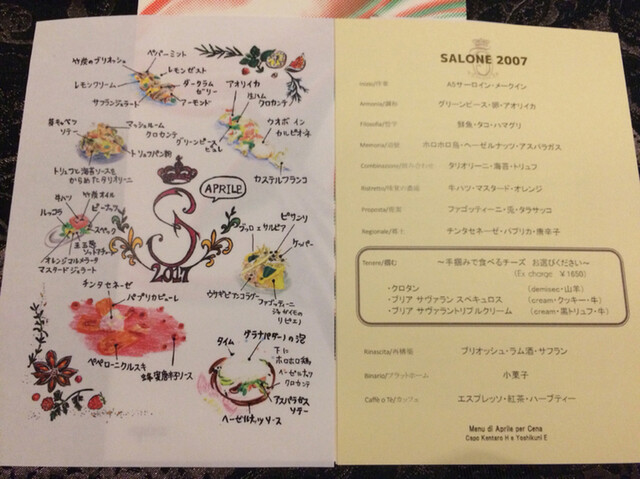 竹炭のブリオッシュ
ペパーミント
レモンゼスト
レモンクリーム
ダークラム
ゼリー
サフランジェラート
アーモンド
アオリイカ
生ハム
クロカンテ
ウオボ イン
カルピオーネ
グリーンピース
ピュレ
カステルフランコ
芽キャベツ
ソテー
マッシュルーム
クロカンテ
トリュフパン粉
トリュフと海苔ソースを
からめたタリオリーニ
APRILE
2017
牛ハツ
竹炭オイル
ルッコラ
ピーナッツ
スペック
オレンジコルメラータ
マスタードジェラート
ブロ エ サルピア
ピゼリソ
ケッパー
ウサギビアンコラグー
ファゴッティーニ
じゃがイモの
リピエノ
チンタセネーゼ
パプリカピューレ
ペペローニクルスキ
蜂蜜唐辛子ソース
グラナパダーノの泡
タイム
下に
ホロホロ鶏
ヘーゼルナッツ
クロカンテ
アスパラガス
ソテー
ヘーゼルナッツソース
SALONE 2007
A5サーロイン・メークイン
Armonia/調和 グリーンピース・卵・アオリイカ
Filosofia/哲学 鮮魚・タコ・ハマグリ
Memoria/記憶 ホロホロ鳥・ヘーゼルナッツ・アスパラガス
Combinazione/組み合わせ タリオリーニ・海苔・トリュフ
Ristretto/味覚の凝縮 牛ハツ・マスタード・オレンジ
Proposta/提案 ファゴッティーニ・兎・タラサッコ
Regionale/郷土 チンタセネーゼ・パプリカ・唐辛子
Tenere/掴む ～手掴みで食べるチーズ お選びください～
(Ex charge ￥1650)
・クロタン (demisec・山羊)
・ブリア サヴァラン スペキュロス (cream・クッキー・牛)
・ブリア サヴァラントリプルクリーム (cream・黒トリュフ・牛)
Rinascita/再構築 ブリオッシュ・ラム酒・サフラン
Binario/プラットホーム 小菓子
Caffè o Tè/カフェ エスプレッソ・紅茶・ハーブティー
Menu di Aprile per Cena
Capo Kentaro H e Yoshikuni E